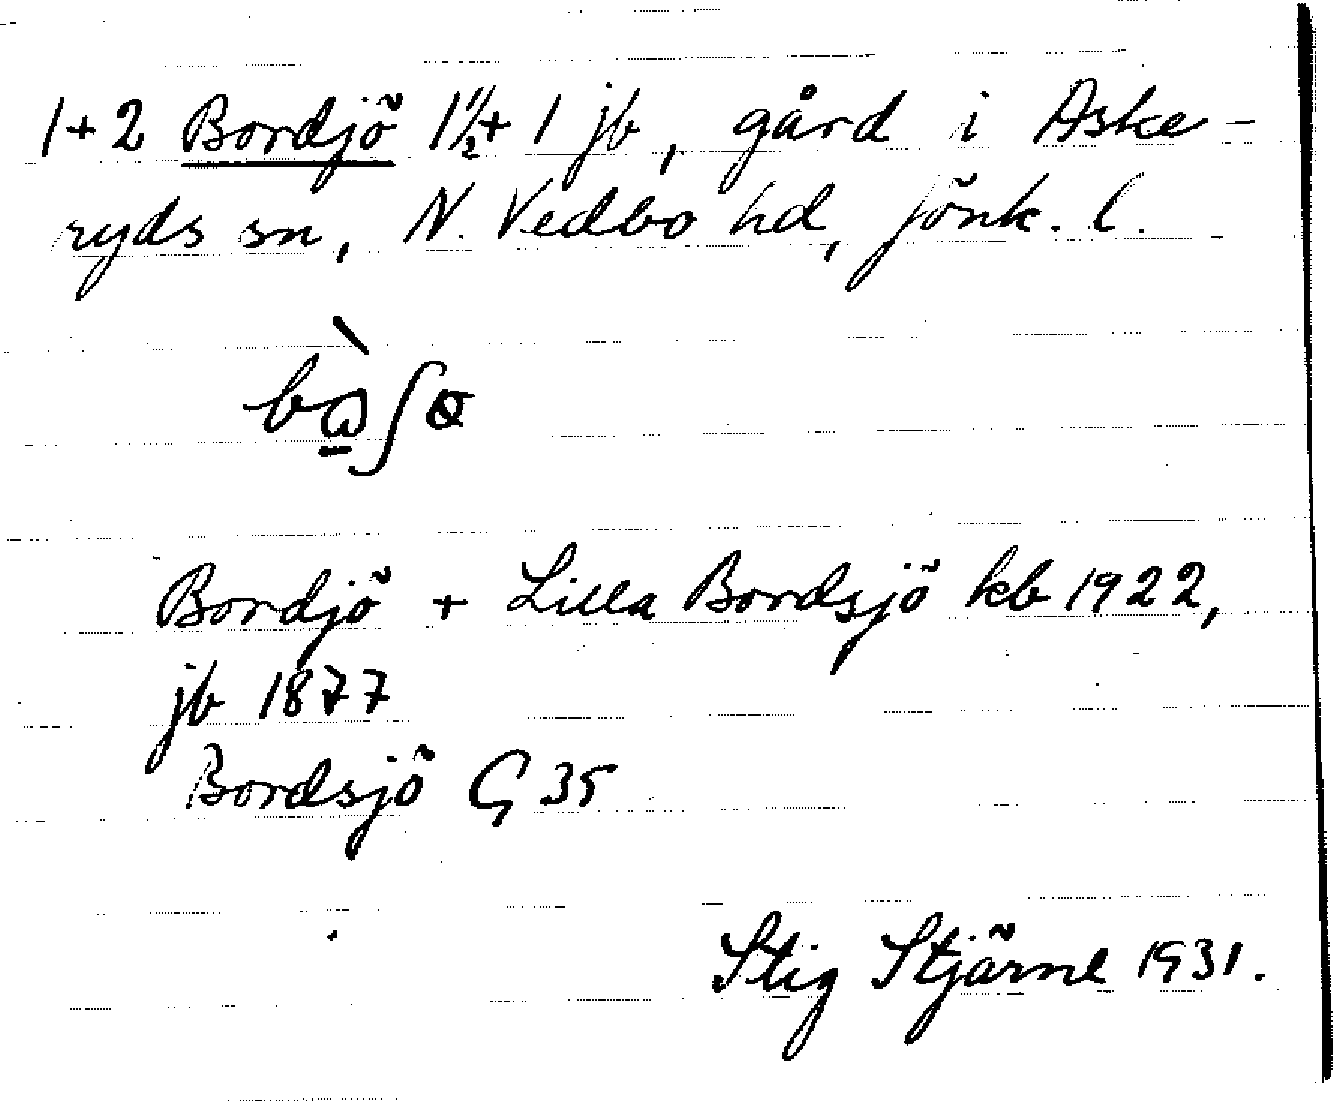 1+2 Bordjö 1 1/2 + 1 jb, gård i Aske-
ryds sn, N. Vedbo hd, Jönk. l.
Bordjö + Lilla Bordsjö kb 1922,
jb 1877
Bordsjö G 35
Stig Stjärne 1931.